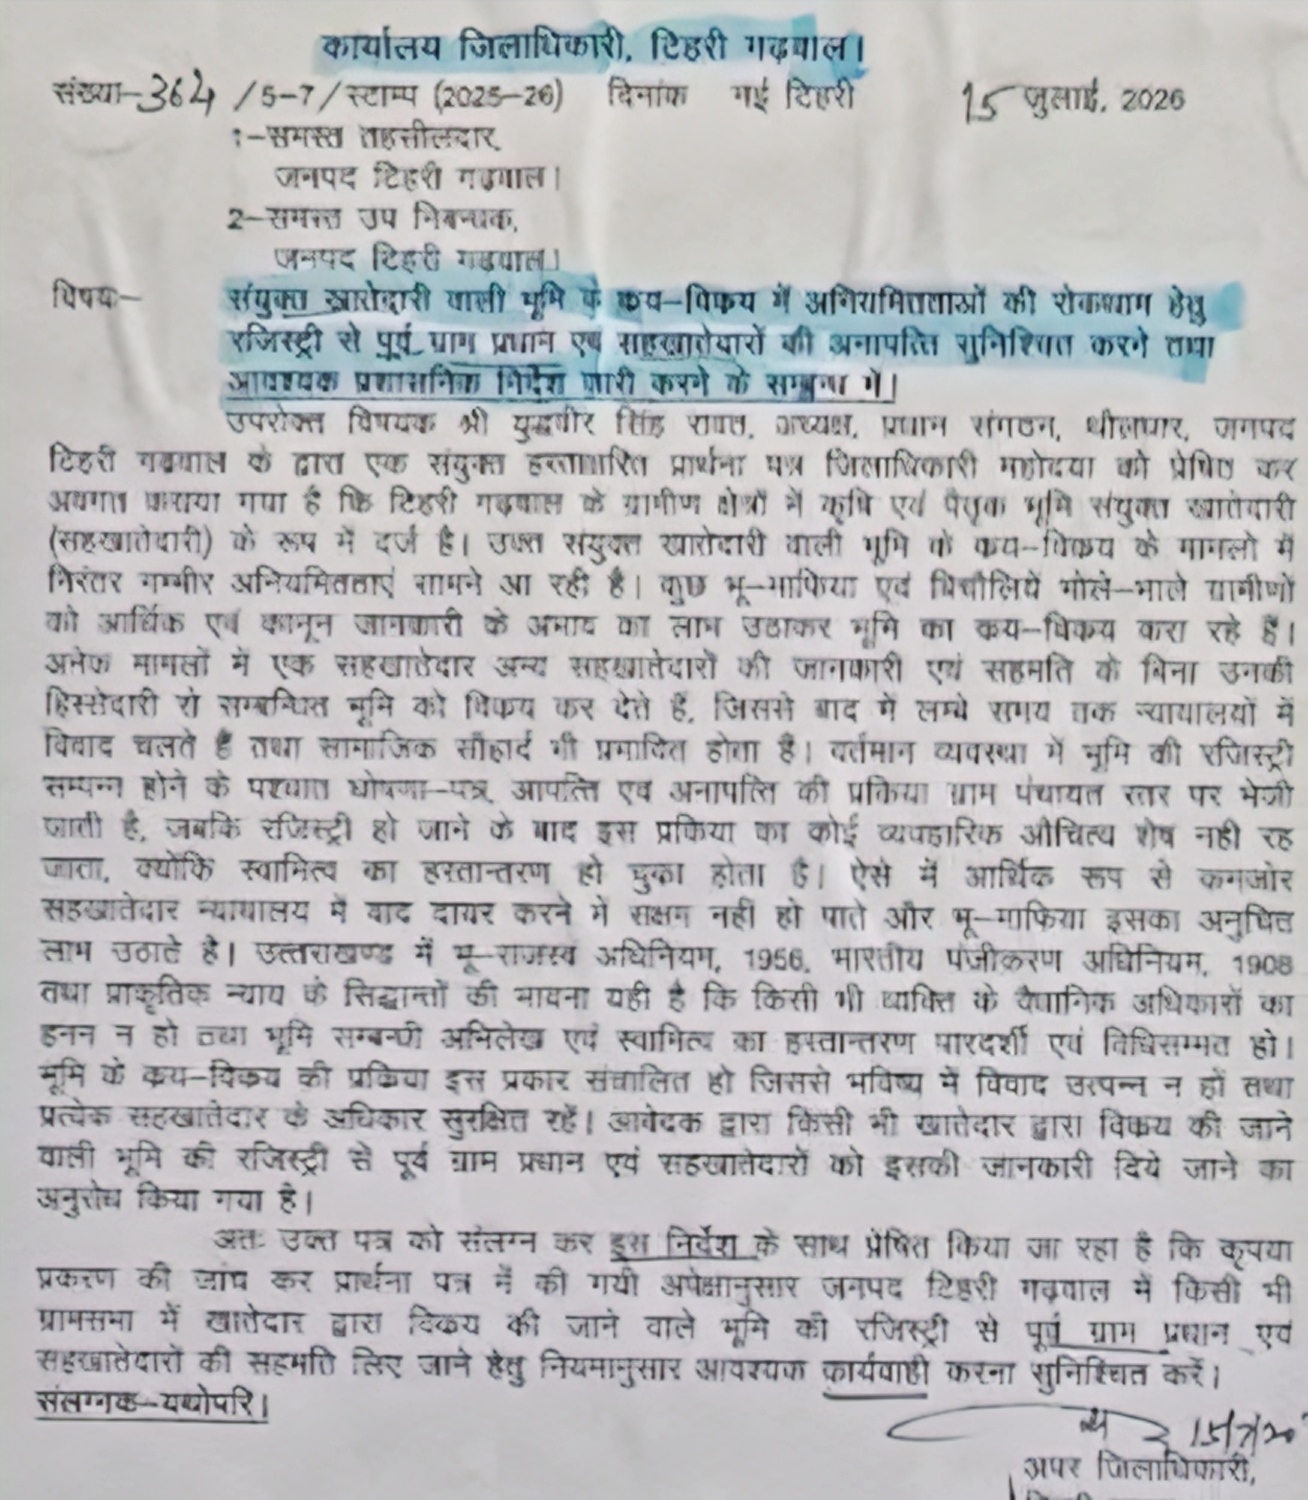 कार्यालय जिलाधिकारी, टिहरी गढ़वाल।
संख्या-364 /5-7/स्टाम्प (2025-26) दिनांक नई टिहरी 15 जुलाई, 2026
1-समस्त तहसीलदार,
जनपद टिहरी गढ़वाल।
2-समस्त उप निबन्धक,
जनपद टिहरी गढ़वाल।
विषयः- संयुक्त खातेदारी वाली भूमि के कय-विकय में अनियमितताओं की रोकथाम हेतु
रजिस्ट्री से पूर्व ग्राम प्रधान एवं सहखातेदारों की अनापत्ति सुनिश्चित करने तथा
आवश्यक प्रशासनिक निर्देश जारी करने के सम्बन्ध में।
उपरोक्त विषयक श्री युद्धवीर सिंह रावत, अध्यक्ष, प्रधान संगठन, थौलधार, जनपद
टिहरी गढ़वाल के द्वारा एक संयुक्त हस्ताक्षरित प्रार्थना पत्र जिलाधिकारी महोदया को प्रेषित कर
अवगत कराया गया है कि टिहरी गढ़वाल के ग्रामीण क्षेत्रों में कृषि एवं पैतृक भूमि संयुक्त खातेदारी
(सहखातेदारी) के रूप में दर्ज है। उक्त संयुक्त खातेदारी वाली भूमि के कय-विकय के मामलो में
निरंतर गम्भीर अनियमितताएं सामने आ रही है। कुछ भू-माफिया एवं बिचौलिये भोले-भाले ग्रामीणों
को आर्थिक एवं कानून जानकारी के अभाव का लाभ उठाकर भूमि का कय-विकय करा रहे है।
अनेक मामलों में एक सहखातेदार अन्य सहखातेदारों की जानकारी एवं सहमति के बिना उनकी
हिस्सेदारी से सम्बन्धित भूमि को विकय कर देते हैं, जिससे बाद में लम्बे समय तक न्यायालयों में
विवाद चलते हैं तथा सामाजिक सौहार्द भी प्रभावित होता है। वर्तमान व्यवस्था में भूमि की रजिस्ट्री
सम्पन्न होने के पश्चात घोषणा-पत्र, आपत्ति एवं अनापत्ति की प्रकिया ग्राम पंचायत स्तर पर भेजी
जाती है, जबकि रजिस्ट्री हो जाने के बाद इस प्रकिया का कोई व्यवहारिक औचित्य शेष नही रह
जाता, क्योंकि स्वामित्व का हस्तान्तरण हो चुका होता है। ऐसे में आर्थिक रूप से कमजोर
सहखातेदार न्यायालय में वाद दायर करने में सक्षम नहीं हो पाते और भू-माफिया इसका अनुचित
लाभ उठाते है। उत्तराखण्ड में भू-राजस्व अधिनियम, 1956, भारतीय पंजीकरण अधिनियम, 1908
तथा प्राकृतिक न्याय के सिद्धान्तों की भावना यही है कि किसी भी व्यक्ति के वैधानिक अधिकारों का
हनन न हो तथा भूमि सम्बन्धी अभिलेख एवं स्वामित्व का हस्तान्तरण पारदर्शी एवं विधिसम्मत हो।
भूमि के कय-विकय की प्रकिया इस प्रकार संचालित हो जिससे भविष्य में विवाद उत्पन्न न हों तथा
प्रत्येक सहखातेदार के अधिकार सुरक्षित रहें। आवेदक द्वारा किसी भी खातेदार द्वारा विकय की जाने
वाली भूमि की रजिस्ट्री से पूर्व ग्राम प्रधान एवं सहखातेदारों को इसकी जानकारी दिये जाने का
अनुरोध किया गया है।
अतः उक्त पत्र को संलग्न कर इस निर्देश के साथ प्रेषित किया जा रहा है कि कृपया
प्रकरण की जांच कर प्रार्थना पत्र में की गयी अपेक्षानुसार जनपद टिहरी गढ़वाल में किसी भी
ग्रामसभा में खातेदार द्वारा विकय की जाने वाले भूमि की रजिस्ट्री से पूर्व ग्राम प्रधान एवं
सहखातेदारों की सहमति लिए जाने हेतु नियमानुसार आवश्यक कार्यवाही करना सुनिश्चित करें।
संलग्नक-यथोपरि।
15/7/20
अपर जिलाधिकारी,